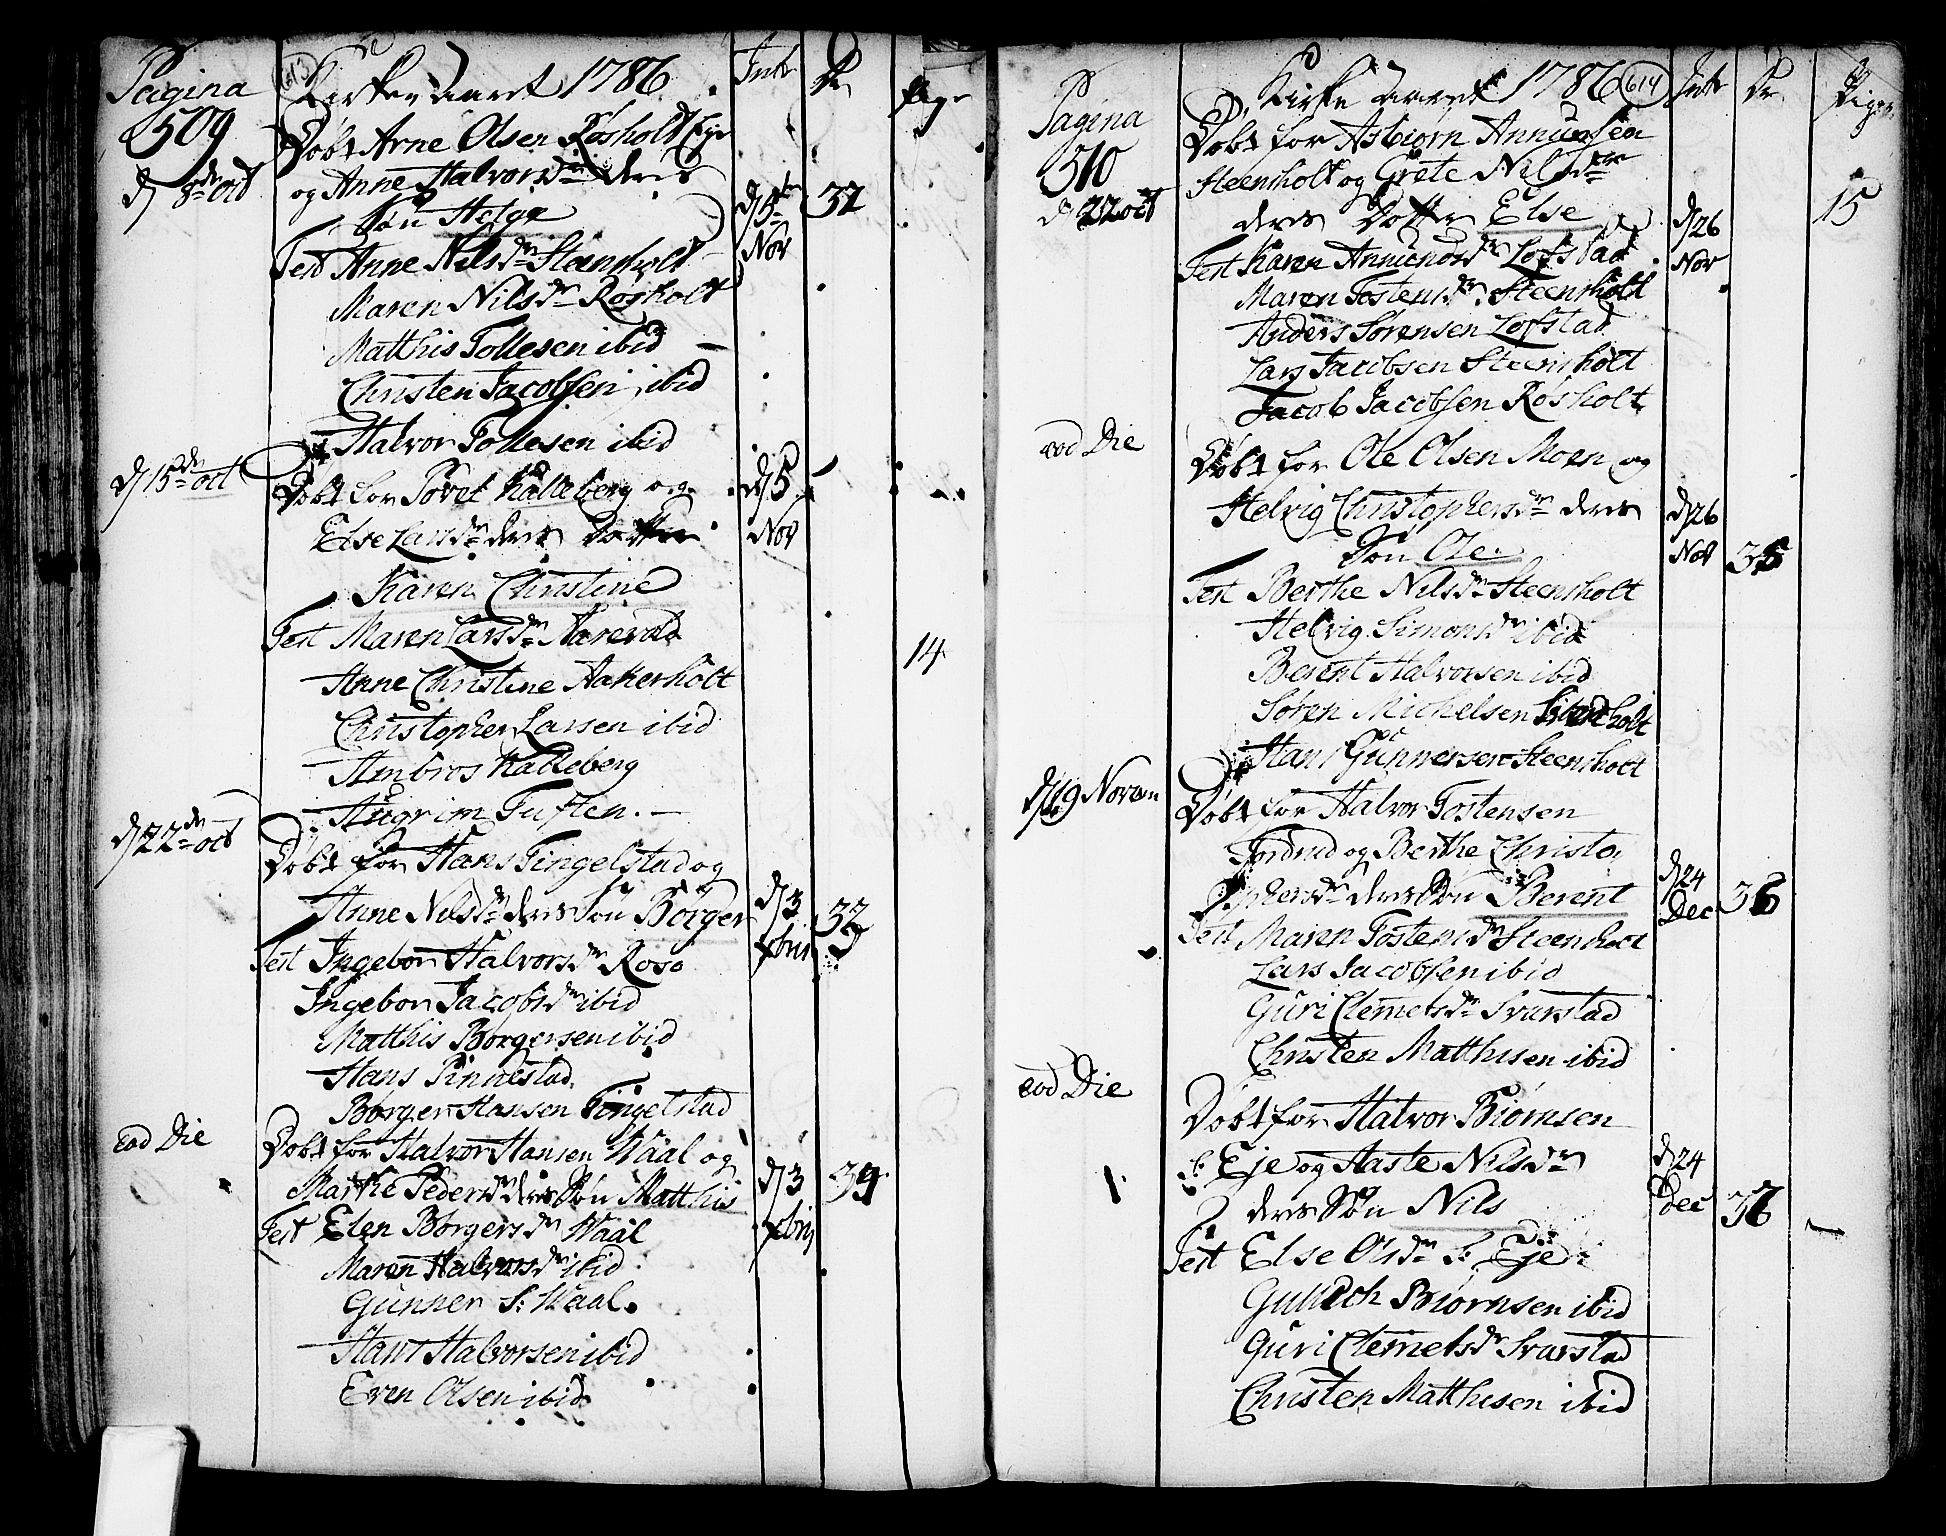 Pagina
509
613
Kirke aaret 1786
Int
Dr
Pige
d 8de oct
Døbt Arne Olsen Røsholt Eje
og Anne Halvorsdr deres
Søn Helge
d 5te
Nov
32
Test Anne Nilsdr Steensholt
Maren Nilsdr Røsholt
Matthis Tollesen ibid
Christen Jacobsen ibid
Halvor Tollesen ibid
d 15de oct
Døbt for Povel Kalleberg og
Else Larsdr deres Dotter
Karen Christine
d 5
Nov
14
Test Maren Larsdr
Anne Christine Aakerholt
Christopher Larsen ibid
Ambros Kalleberg
Angrim Tuften
d 22de oct
Døbt for Hans Tingelstad og
Anne Nilsdr deres Søn Børger
d 3
xbris
33
Test Ingebor Halvorsdr
Ingebor Jacobsdr ibid
Matthis Borgersen ibid
Hans Tinnestad
Børger Hansen Tingelstad
eod Die
Døbt for Halvor Hansen Waal og
Marthe Pedersdr deres Søn Matthis
d 3
xbris
34
Test Elen Børgersdr Waal
Maren Halvorsdr ibid
Gunner S: Waal
Hans Halvorsen ibid
Even Olsen ibid
Pagina
510
Kirke aaret 1786
614
Int
Dr
Piger
d 22 oct
Døbt for Asbiørn Annunsen
Steensholt og Grete Nilsdr
deres Dotter Else
d 26
Nov
15
Test Karen Annundsdr Lofstad
Maren Tostensdr Steensholt
Anders Sørensen Lofstad
Lars Jacobsen Steensholt
Jacob Jacobsen Røsholt
eod Die
Døbt for Ole Olsen Moen og
Helvig Christophersdr deres
Søn Ole
d 26
Nov
35
Test Berthe Nilsdr Steensholt
Helvig Simonsdr ibid
Berent Halvorsen ibid
Søren Michelsen
Hans Gunnersen Steensholt
d 19 Novem
Døbt for Halvor Tostensen
Jordrud og Berthe Christo,
phersdr deres Søn Berent
d 24
Dec
36
Test Maren Tostensdr Steensholt
Lars Jacobsen ibid
Guri Clemetsdr Svarstad
Christen Matthisen ibid
eod Die
Døbt for Halvor Biørnsen
S: Eje og Aaste Nilsdr
deres Søn Nils
d 24
Dec
37
Test Else Olsdr S: Eje
Gullich Biørnsen ibid
Guri Clemetsdr Svarstad
Christen Matthisen ibid